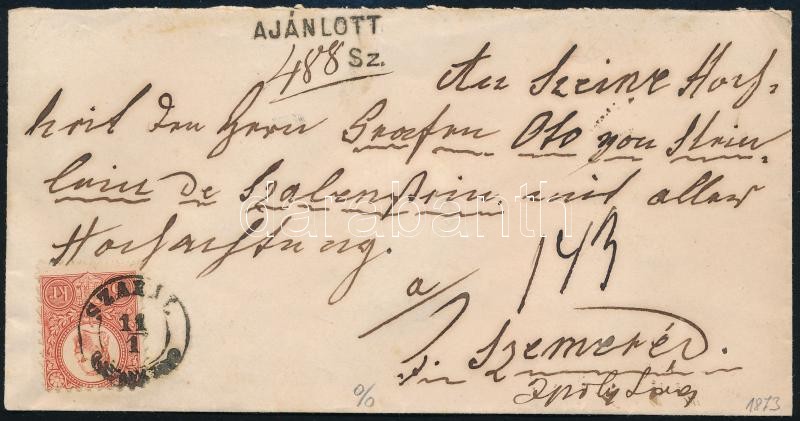 AJÁNLOTT
488 Sz.
An Seine Hoch-
heit den Herrn Grafen Oto von Stein-
lein de Szalenstein, mit aller
Hochachtung.
143
a/
in Szemeréd.
Ipolyság
SZAKÁL
11
1
KR
darabanth
%
1873